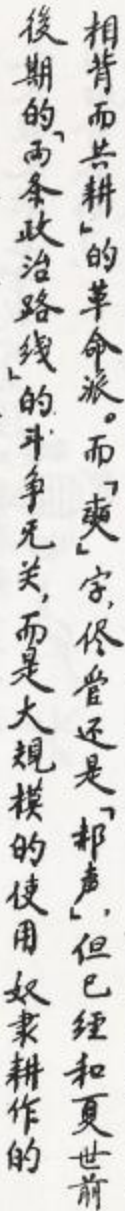 相背而共耕」的革命派。而「奭」字，侭管还是「邦声」，但已经和夏世前
後期的「两条政治路线」的斗争无关，而是大規模的使用奴隶耕作的